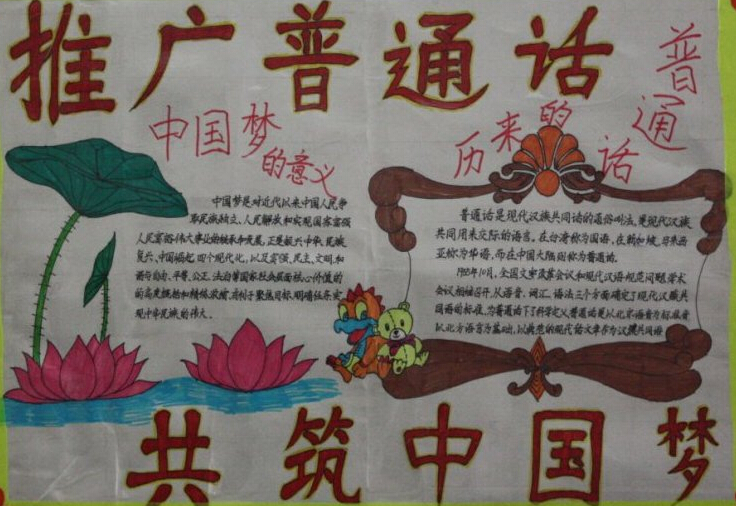 推广普通话
中国梦
的意义
中国梦是对近代以来中国人民争
取民族独立、人民解放和实现国家富强
人民富裕伟大事业的继承和发展，正是振兴中华、民族
复兴、中国崛起、四个现代化，以及富强、民主、文明、和
谐与自由、平等、公正、法治等国家社会层面核心价值的
的高度概括和精练浓缩，有利于聚焦目标，明确任务，实
现中华民族的伟大。
普通话
历来的话
普通话是现代汉族共同话的通俗叫法，是现代汉族
共同用来交际的语言。在台湾称为国语，在新加坡、马来西
亚称为华语，而在中国大陆则称为普通话。
1955年10月，全国文字改革会议和现代汉语规范问题学术
会议相继召开，从语音、词汇、语法三个方面确定了现代汉民共
同语的标准，为普通话下了科学定义，普通话是以北京语音为标准音
以北方语言为基础，以典范的现代话文章作为汉民共同语
共筑中国梦